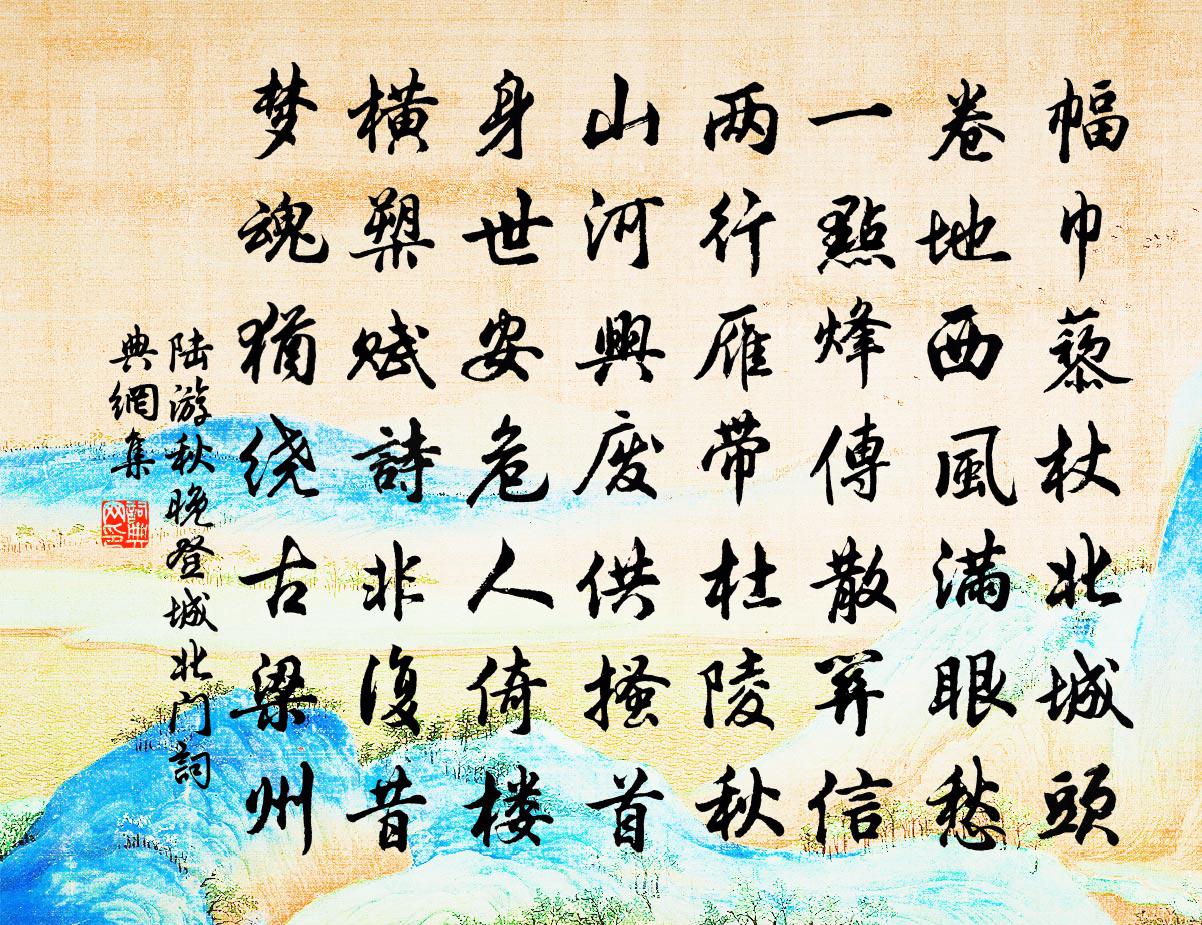 幅巾藜杖北城頭
卷地西風滿眼愁
一點烽傳散關信
两行雁帶杜陵秋
山河興廢供搔首
身世安危人倚楼
横槊赋詩非復昔
梦魂猶绕古梁州
陆游秋晚登城北门詞
典網集
詞典网印